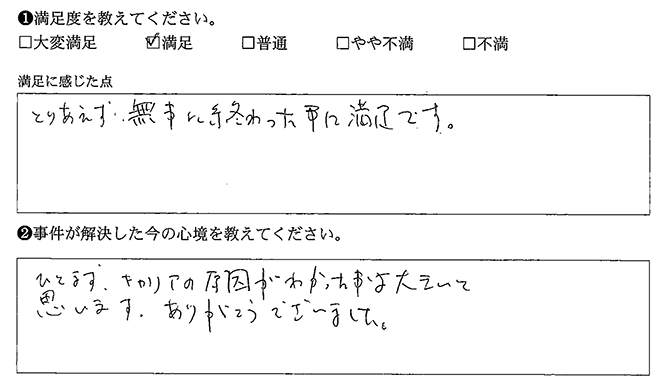 ❶満足度を教えてください。
□大変満足 ☑満足 □普通 □やや不満 □不満
満足に感じた点
とりあえず、無事に終わった事に満足です。
❷事件が解決した今の心境を教えてください。
ひとまず、キャリアの原因がわかった事は大きいと
思います。ありがとうございました。